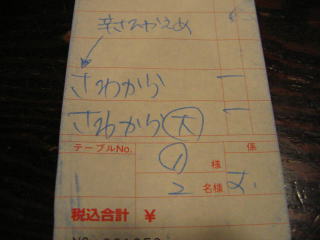 辛さひかえめ
さわから 一
さわから 大 一
テーブルNo. 1 様 係
2 名様
税込合計 ¥